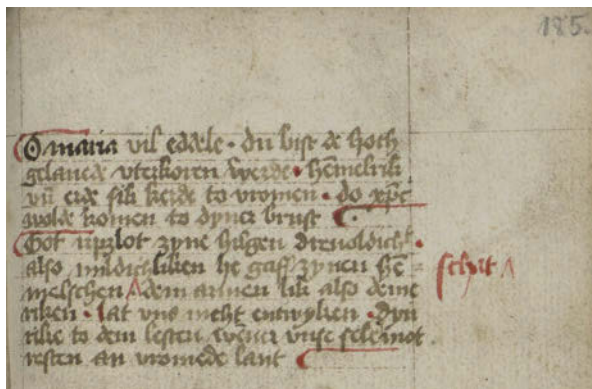 185.
O maria vil eddele · du bist de hoch
gelauede vterkoren werde · hemelrik
vn̄ erde sik kerde to vromen · do xp̄c
wolde komen to dyner brust
Got vpzlot zyne hilgen dreuoldicht ·
also mildichliken he gaff zynen hē=
melschen ^ dem armen lik also deme schat ^
riken · lat vns nicht entwyken · dyn
rike to dem lesten wēner vnse sele mot
resten an vromede lant